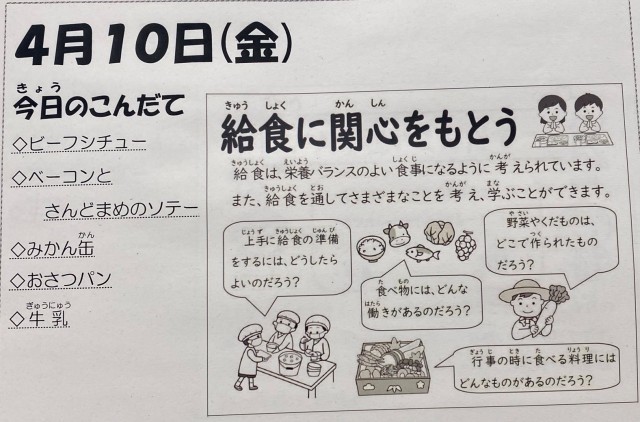 4月10日(金)
今日のこんだて
◇ビーフシチュー
◇ベーコンと
さんどまめのソテー
◇みかん缶
◇おさつパン
◇牛乳
給食に関心をもとう
給食は、栄養バランスのよい食事になるように考えられています。
また、給食を通してさまざまなことを考え、学ぶことができます。
上手に給食の準備
をするには、どうしたら
よいのだろう?
食べ物には、どんな
働きがあるのだろう?
野菜やくだものは、
どこで作られたもの
だろう?
行事の時に食べる料理には
どんなものがあるのだろう?